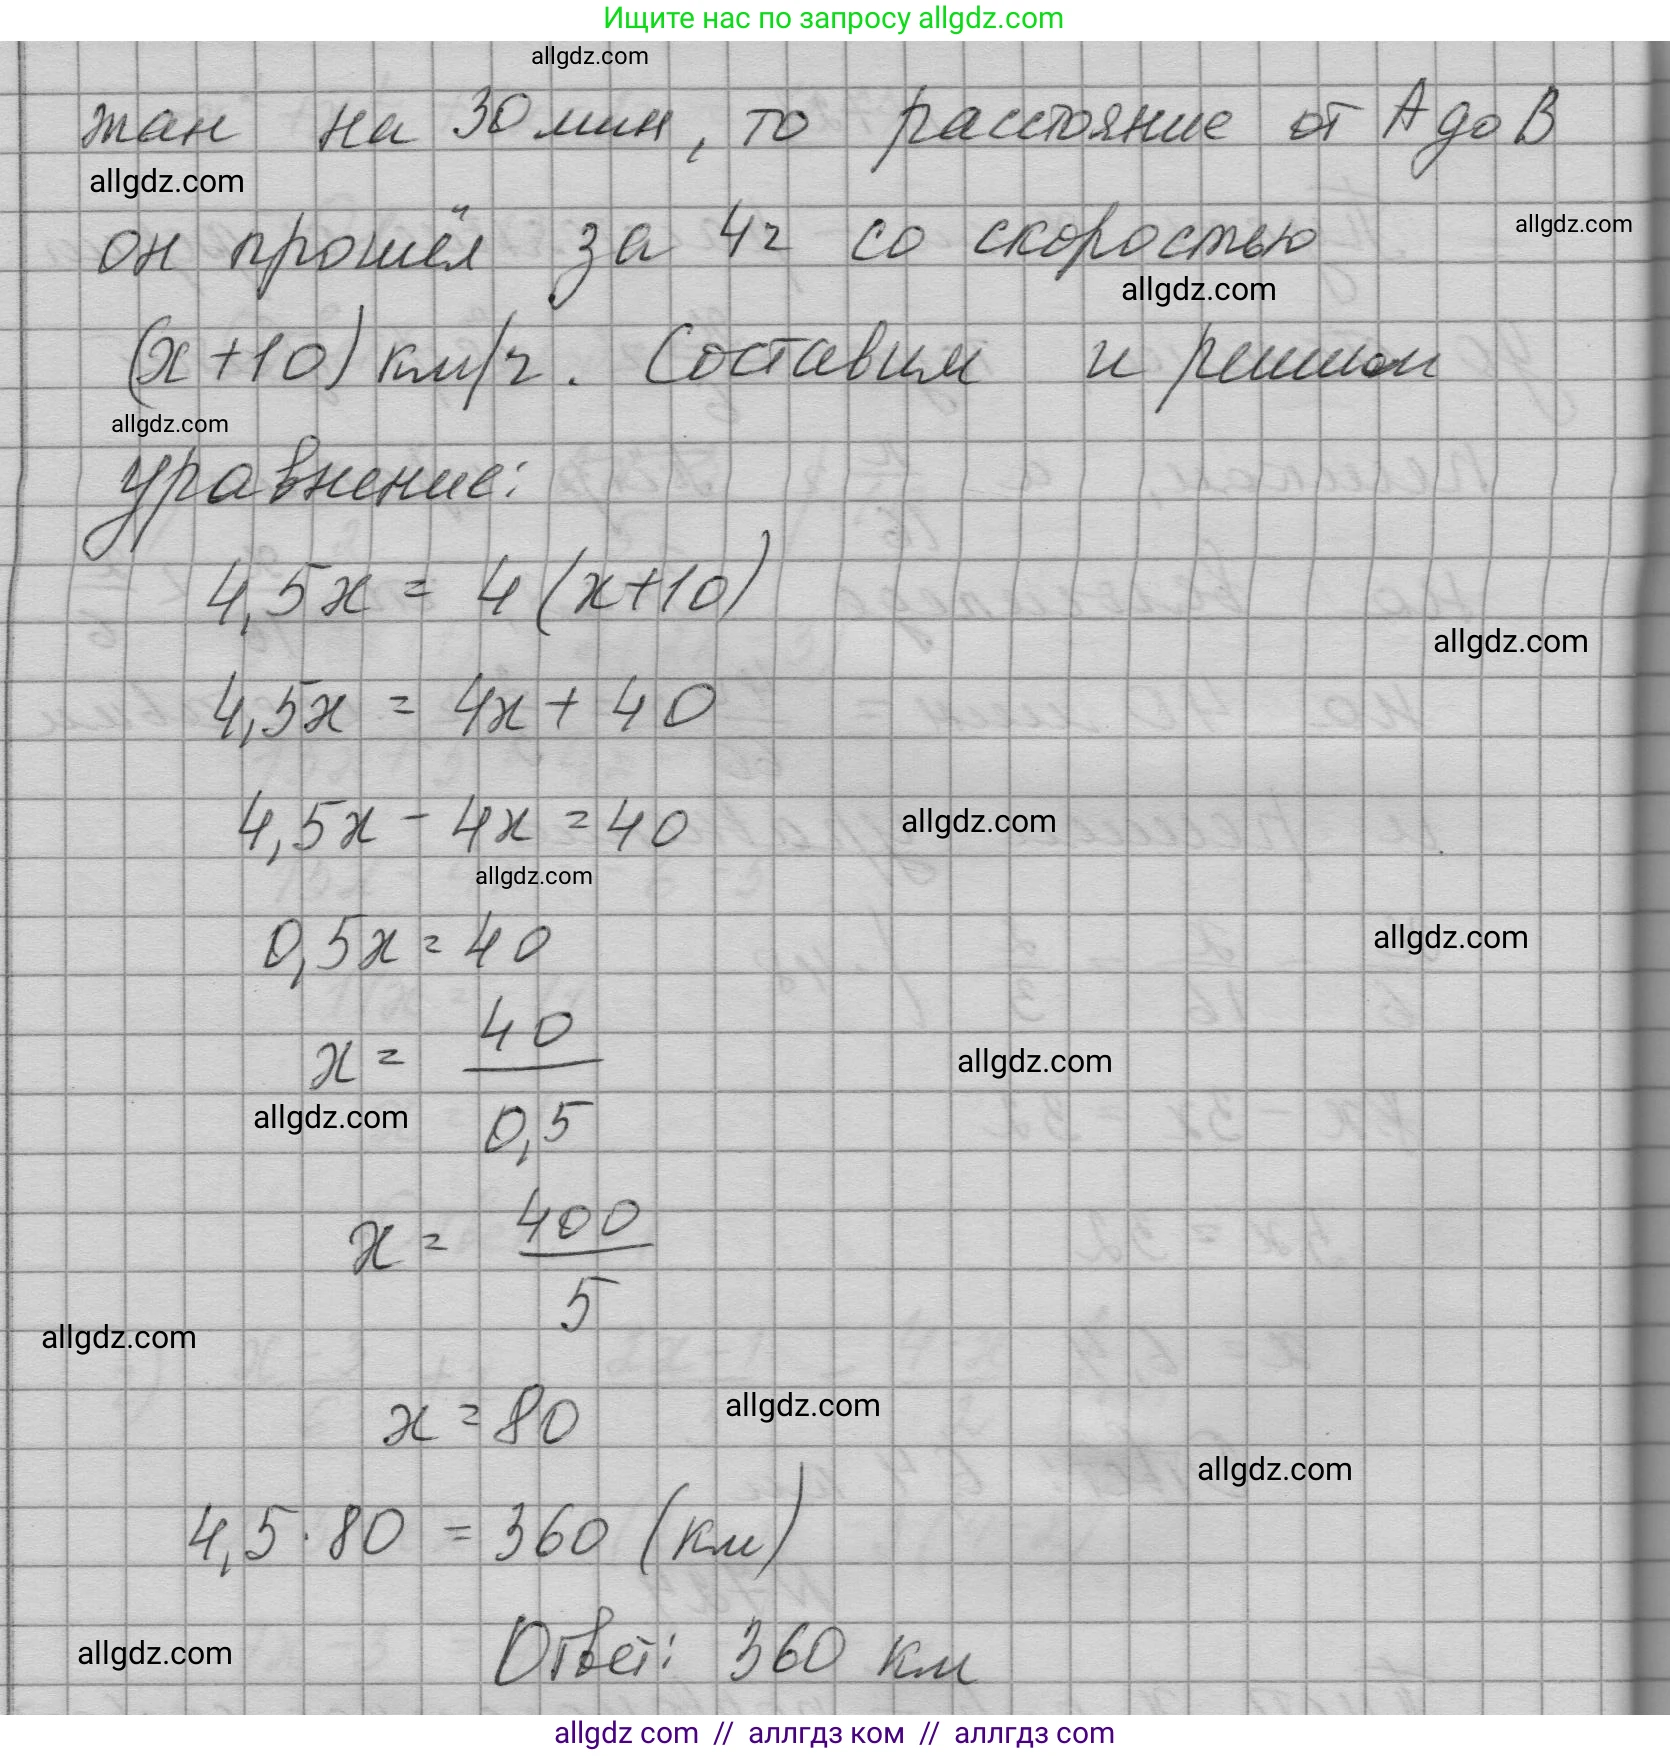 Ищите нас по запросу allgdz.com
allgdz.com
жан на 30 мин, то расстояние от А до В
allgdz.com
он прошёл за 4ч со скоростью
allgdz.com
allgdz.com
(x+10) км/ч. Составим и решим
allgdz.com
уравнение:
4,5x = 4(x+10)
allgdz.com
4,5x = 4x + 40
4,5x - 4x = 40
allgdz.com
allgdz.com
0,5x = 40
allgdz.com
x = 40/0,5
allgdz.com
allgdz.com
x = 400/5
allgdz.com
x = 80
allgdz.com
allgdz.com
4,5 · 80 = 360 (км)
Ответ: 360 км
allgdz.com
allgdz com // аллгдз ком // аллгдз com